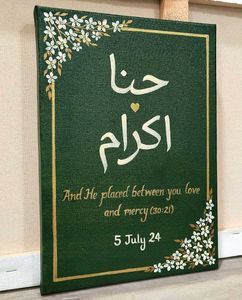 حنا
اکرام
And He placed between you love
and mercy (30:21)
5 July 24